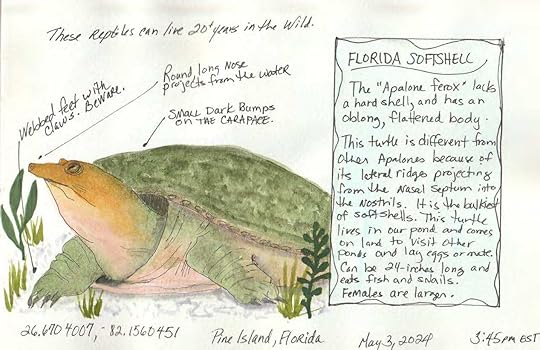 These Reptiles can live 20+ years in the Wild.
Round, long Nose
projects from the water
Webbed feet with
claws. Beware.
Small Dark Bumps
on THE CARAPACE.
FLORIDA SOFTSHELL
The "Apalone ferox" lacks
a hard shell, and has an
oblong, flattened body.
This turtle is different from
Other Apalones because of
its lateral ridges projecting
from the Nasal Septum into
the Nostrils. It is the bulkiest
of softshells. This turtle
lives in our pond and comes
on land to visit other
ponds and lay eggs or mate.
Can be 24-inches long and
eats fish and snails.
Females are larger.
26.6704007, -82.1560451
Pine Island, Florida
May 3, 2024
3:45pm EST